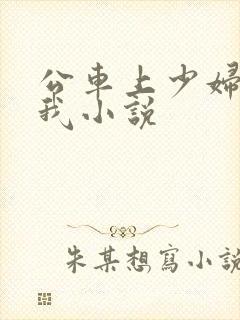 公車上少婦
我小說
朱某想寫小說